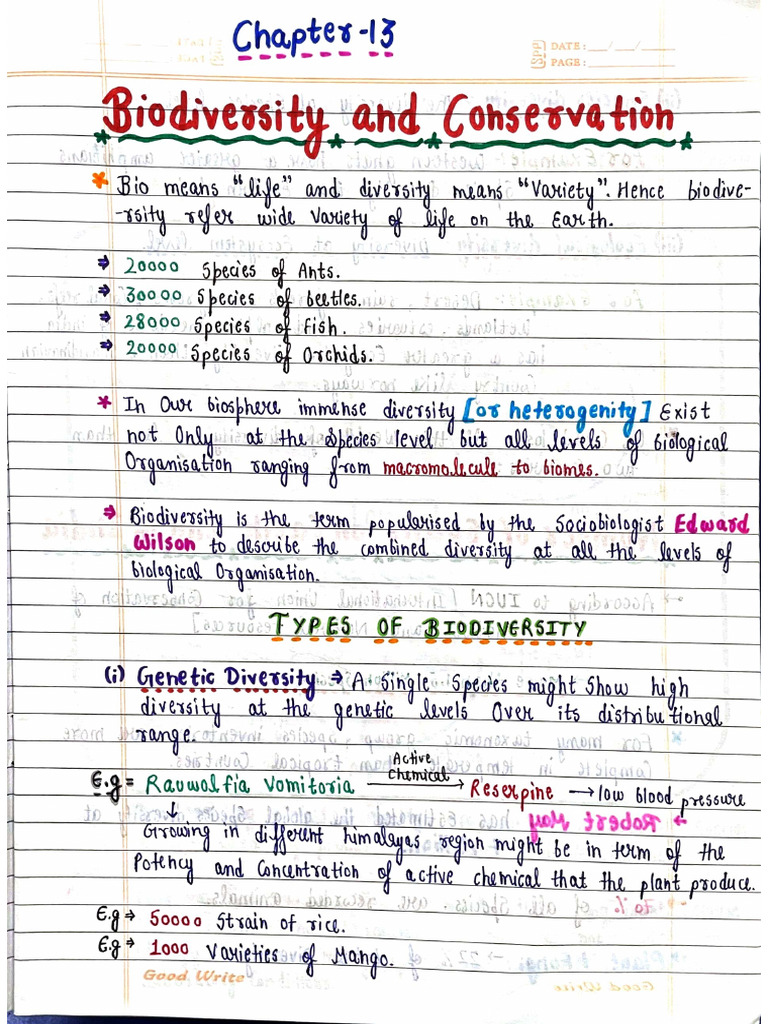 Chapter-13
DATE: __/__/__
PAGE:
Biodiversity and Conservation
* Bio means "life" and diversity means "Variety". Hence biodive-
-rsity refer wide Variety of life on the Earth.
⇒ 20000 Species of Ants.
⇒ 30000 Species of beetles.
⇒ 28000 Species of Fish.
⇒ 20000 Species of Orchids.
* In Our biosphere immense diversity [or heterogenity] Exist
not Only at the Species level but all levels of biological
Organisation ranging from macromolecule to biomes.
⇒ Biodiversity is the term popularised by the Sociobiologist Edward
Wilson to describe the combined diversity at all the levels of
biological Organisation.
TYPES OF BIODIVERSITY
(i) Genetic Diversity ⇒ A Single Species might Show high
diversity at the genetic levels Over its distributional
range.
E.g = Rauwolfia Vomitoria Active Chemical → Reserpine → low blood pressure
↓
Growing in different himalayas region might be in term of the
Potency and Concentration of active chemical that the plant produce.
E.g ⇒ 50000 Strain of rice.
E.g ⇒ 1000 Varieties of Mango.
Good Write